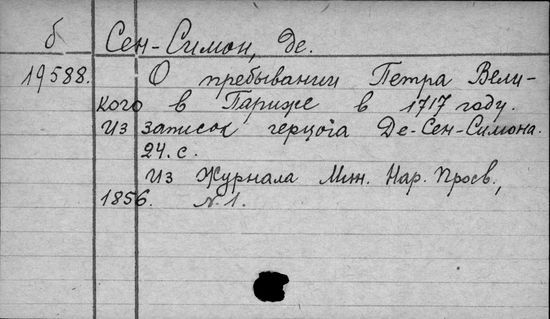 б Сен-Симон, де.
19588. О пребывании Петра Вели-
кого в Париже в 1717 году.
Из записок герцога Де-Сен-Симона.
24. с.
Из Журнала Мин. Нар. Просв.,
1856. N. 1.